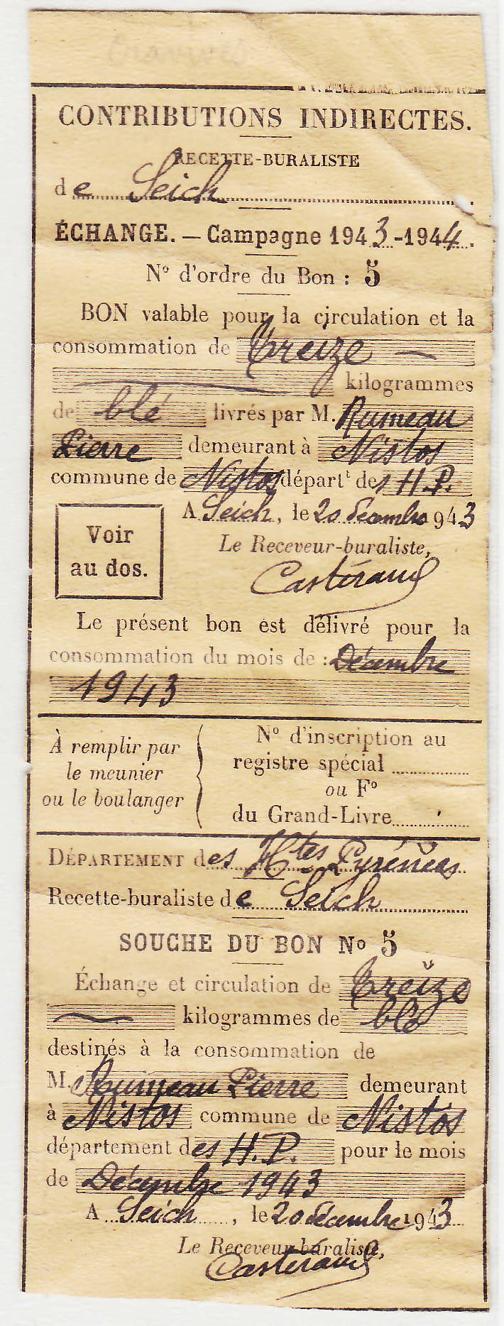 CONTRIBUTIONS INDIRECTES.
RECETTE-BURALISTE
de Seich
ÉCHANGE. — Campagne 1943-1944.
N° d'ordre du Bon : 5
BON valable pour la circulation et la
consommation de Treize —
kilogrammes
de blé livrés par M. Rumeau
Pierre demeurant à Nistos
commune de Nistos départt des H.P.
A Seich, le 20 décembre 1943
Voir
au dos.
Le Receveur-buraliste,
Castéraud
Le présent bon est délivré pour la
consommation du mois de : Décembre
1943
À remplir par
le meunier
ou le boulanger
N° d'inscription au
registre spécial
ou F°
du Grand-Livre
DÉPARTEMENT des Htes Pyrénées
Recette-buraliste de Seich
SOUCHE DU BON N° 5
Échange et circulation de Treize
— kilogrammes de blé
destinés à la consommation de
M. Rumeau Pierre demeurant
à Nistos commune de Nistos
département des H.P. pour le mois
de Décembre 1943
A Seich, le 20 décembre 1943
Le Receveur-buraliste,
Castéraud